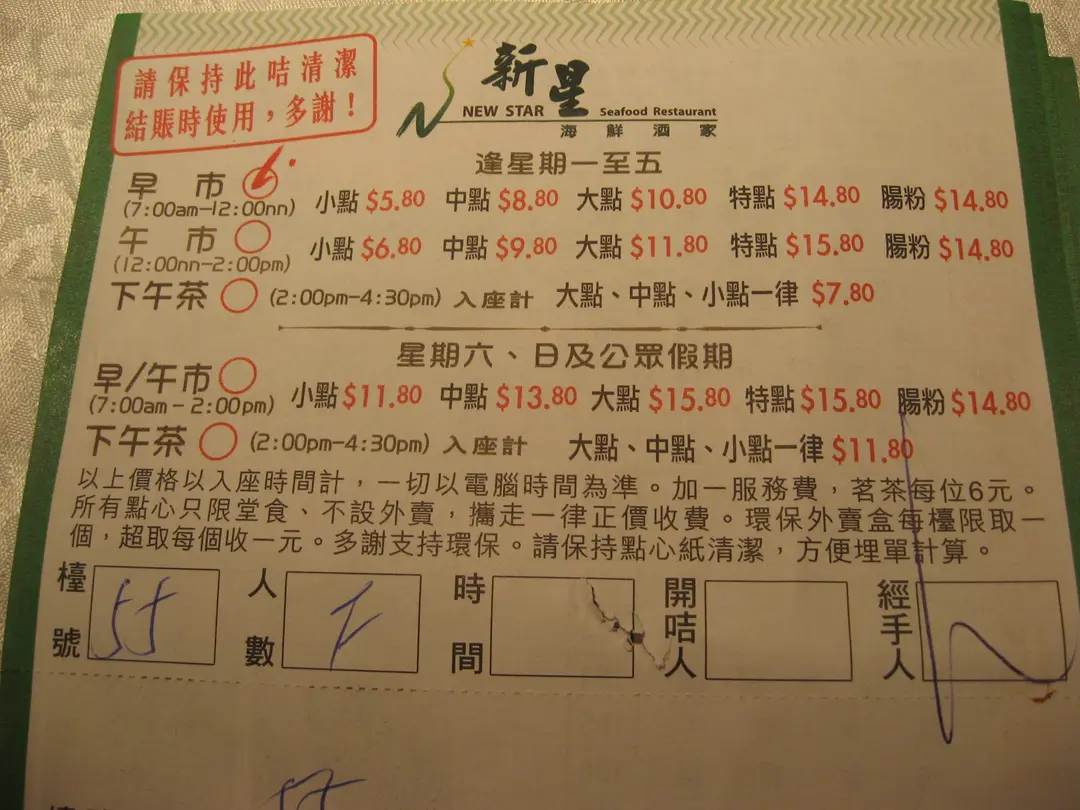 請保持此咭清潔
結賬時使用，多謝！
新星
NEW STAR Seafood Restaurant
海鮮酒家
逢星期一至五
早市 小點 $5.80 中點 $8.80 大點 $10.80 特點 $14.80 腸粉 $14.80
(7:00am-12:00nn)
午市 小點 $6.80 中點 $9.80 大點 $11.80 特點 $15.80 腸粉 $14.80
(12:00nn-2:00pm)
下午茶 (2:00pm-4:30pm) 入座計 大點、中點、小點一律 $7.80
星期六、日及公眾假期
早/午市 小點 $11.80 中點 $13.80 大點 $15.80 特點 $15.80 腸粉 $14.80
(7:00am-2:00pm)
下午茶 (2:00pm-4:30pm) 入座計 大點、中點、小點一律 $11.80
以上價格以入座時間計，一切以電腦時間為準。加一服務費，茗茶每位6元。
所有點心只限堂食、不設外賣，攜走一律正價收費。環保外賣盒每檯限取一
個，超取每個收一元。多謝支持環保。請保持點心紙清潔，方便埋單計算。
檯號 55 人數 時間 開咭人 經手人